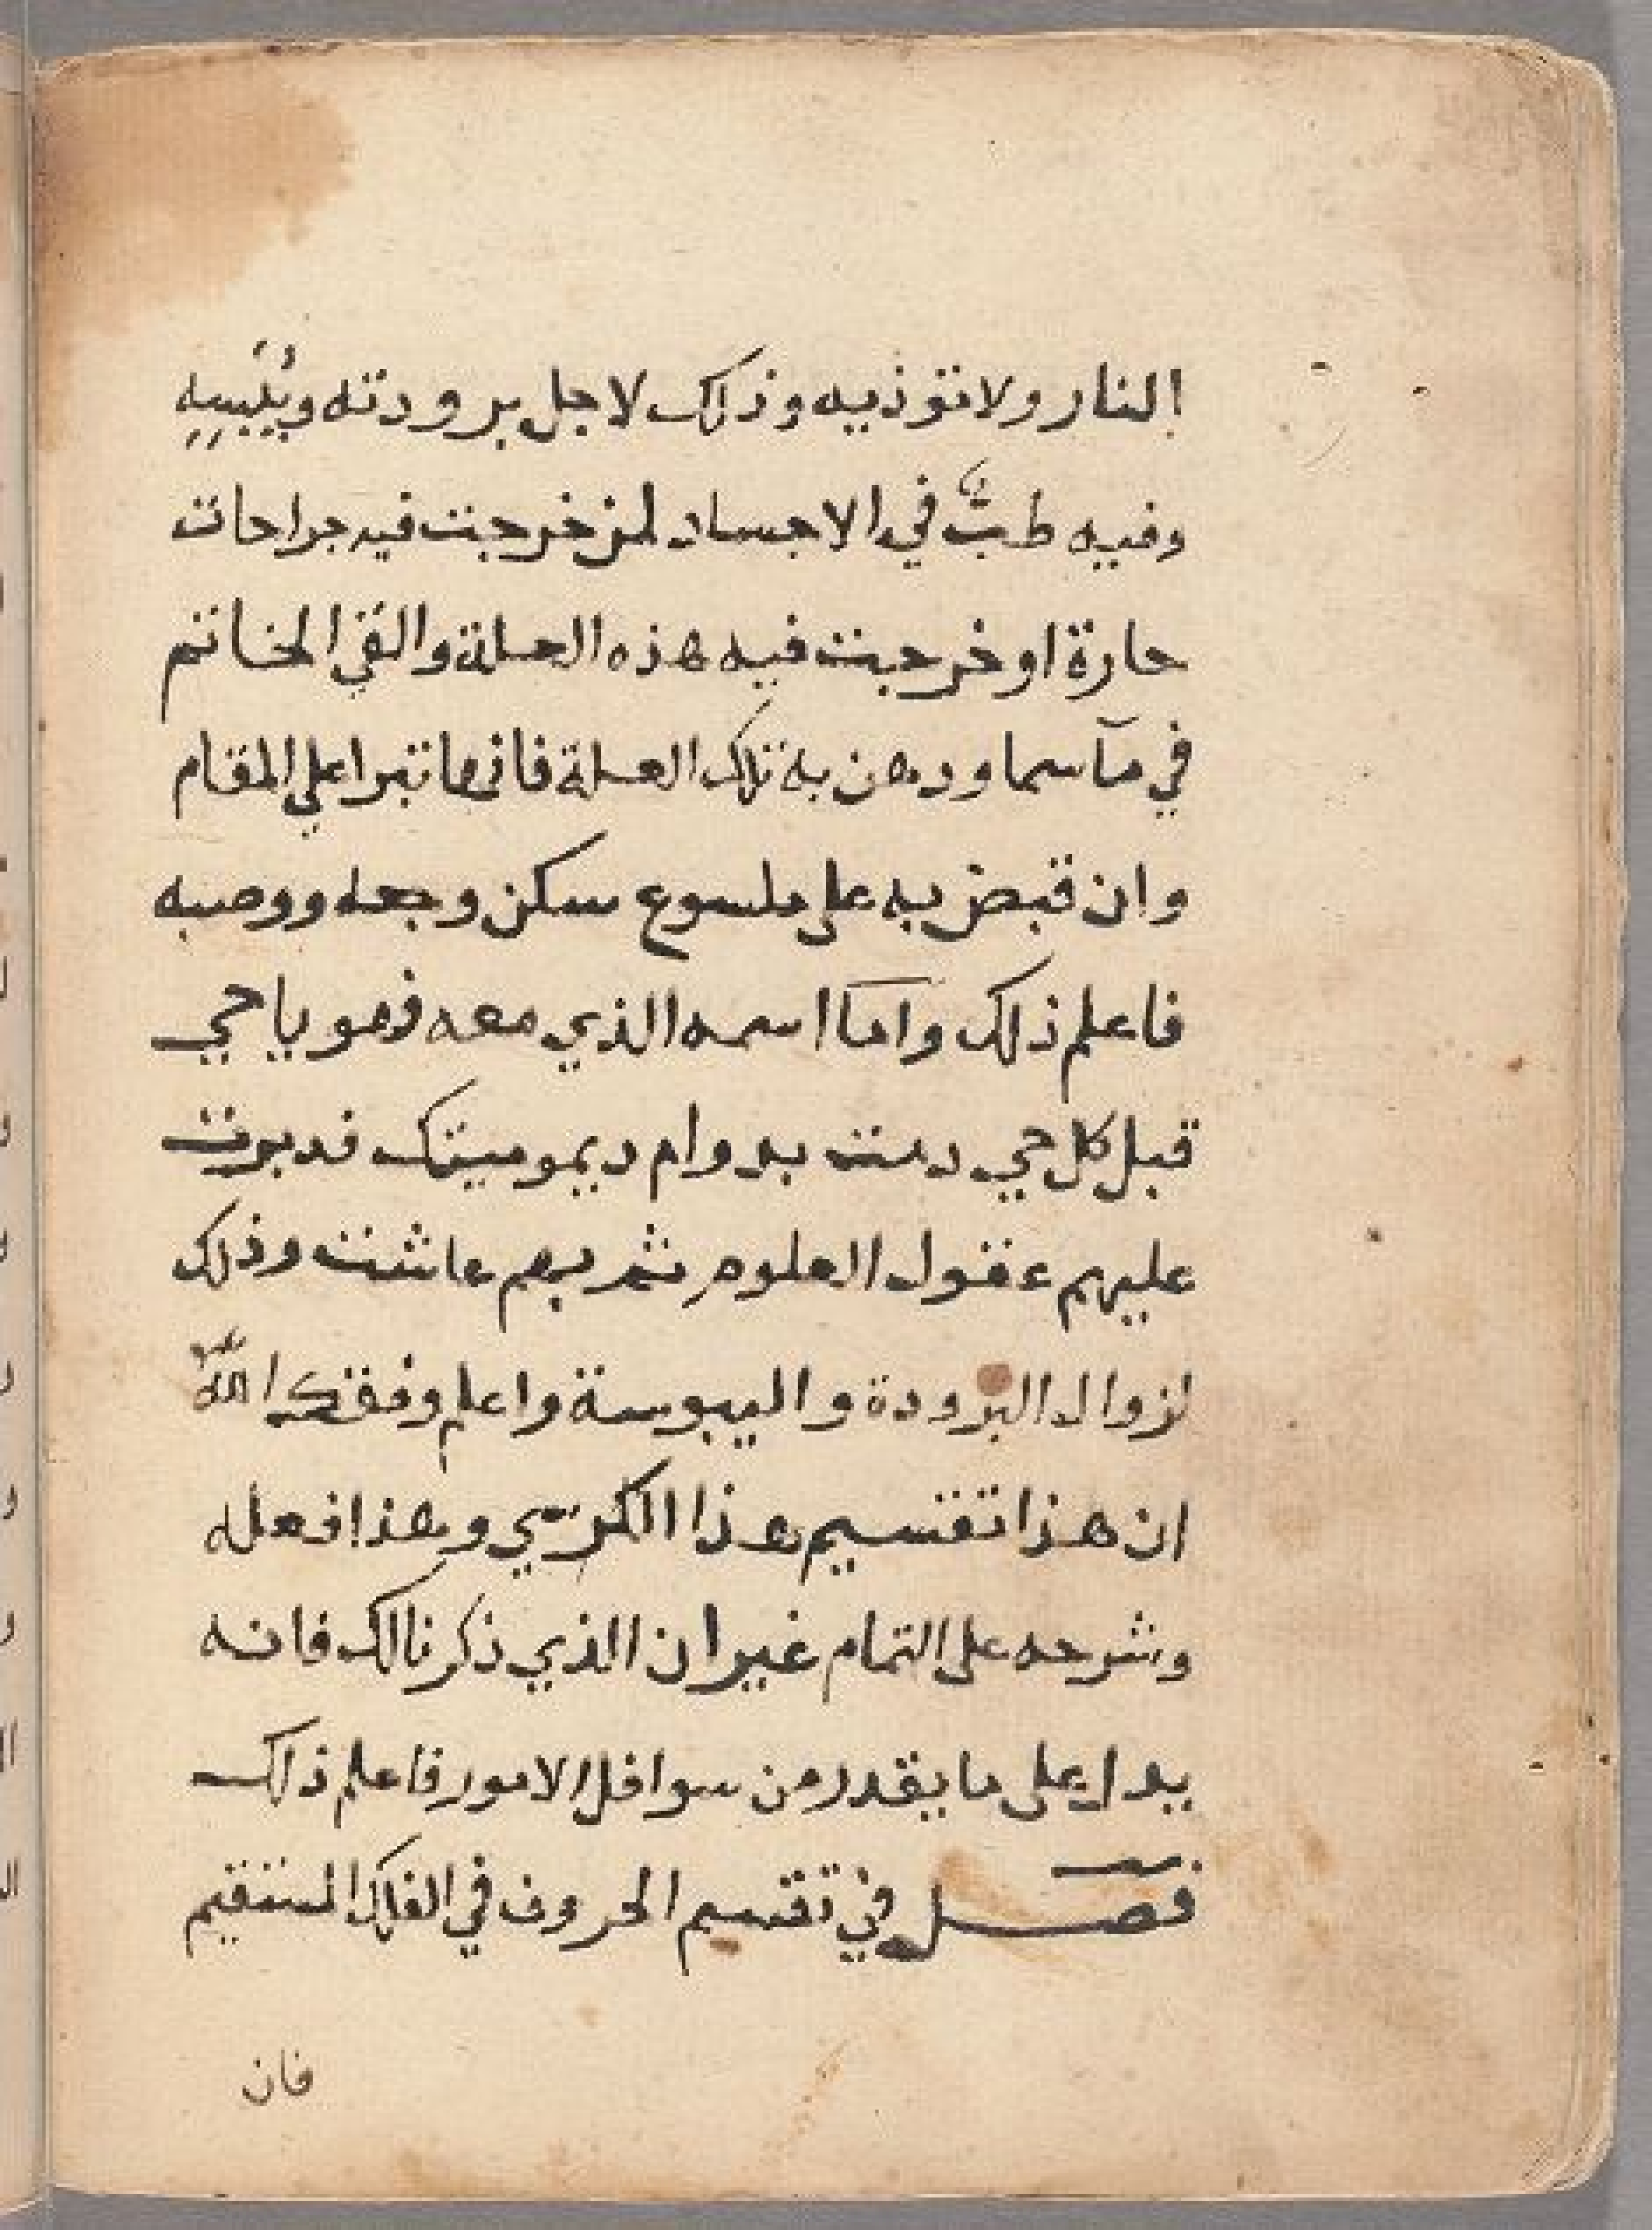 النار ولا تؤذيه وذلك لاجل برودته ويبسه
وفيه طبٌّ في الاجساد لمن خرجت فيه جراحات
حارة او خرجت فيه هذه العلة والقي الخاتم
في مآ سما ودهن به تلك العلة فانها تبرا علي المقام
وان قبض به علي ملسوع سكن وجعه ووصبه
فاعلم ذلك واما اسمه الذي معه فهو يا حي
قبل كل حي دمت بدوام ديموميتك فدبرت
عليهم عقول العلوم ثم بهم عاشت وذلك
لزوال البرودة واليبوسة واعلم وفقك الله
ان هذا تقسيم هذا الكرسي وهذا فعله
وشرحه علي التمام غير ان الذي ذكرنا لك فانه
يدل علي ما يقدر من سوافل الامور فاعلم ذلك
فصل في تقسيم الحروف في الفلك المستقيم
فان